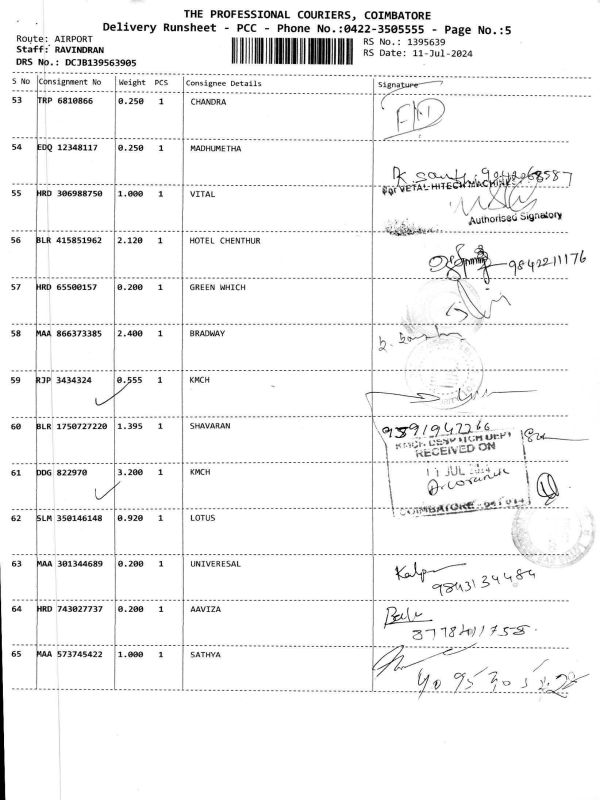 THE PROFESSIONAL COURIERS, COIMBATORE
Delivery Runsheet - PCC - Phone No.:0422-3505555 - Page No.:5
Route: AIRPORT
Staff: RAVINDRAN
DRS No.: DCJB139563905
RS No.: 1395639
RS Date: 11-Jul-2024
S No Consignment No Weight PCS Consignee Details Signature
53 TRP 6810866 0.250 1 CHANDRA
54 EDQ 12348117 0.250 1 MADHUMETHA
9842068587
For VETAL HITECH MACHINES
55 HRD 306988750 1.000 1 VITAL
Authorised Signatory
56 BLR 415851962 2.120 1 HOTEL CHENTHUR
9842211176
57 HRD 65500157 0.200 1 GREEN WHICH
58 MAA 866373385 2.400 1 BRADWAY
59 RJP 3434324 0.555 1 KMCH
60 BLR 1750727220 1.395 1 SHAVARAN
KMCH DESPATCH DEPT
RECEIVED ON
61 DDG 822970 3.200 1 KMCH
11 JUL 2024
COIMBATORE - 641 014
62 SLM 350146148 0.920 1 LOTUS
63 MAA 301344689 0.200 1 UNIVERESAL
9843134484
64 HRD 743027737 0.200 1 AAVIZA
65 MAA 573745422 1.000 1 SATHYA